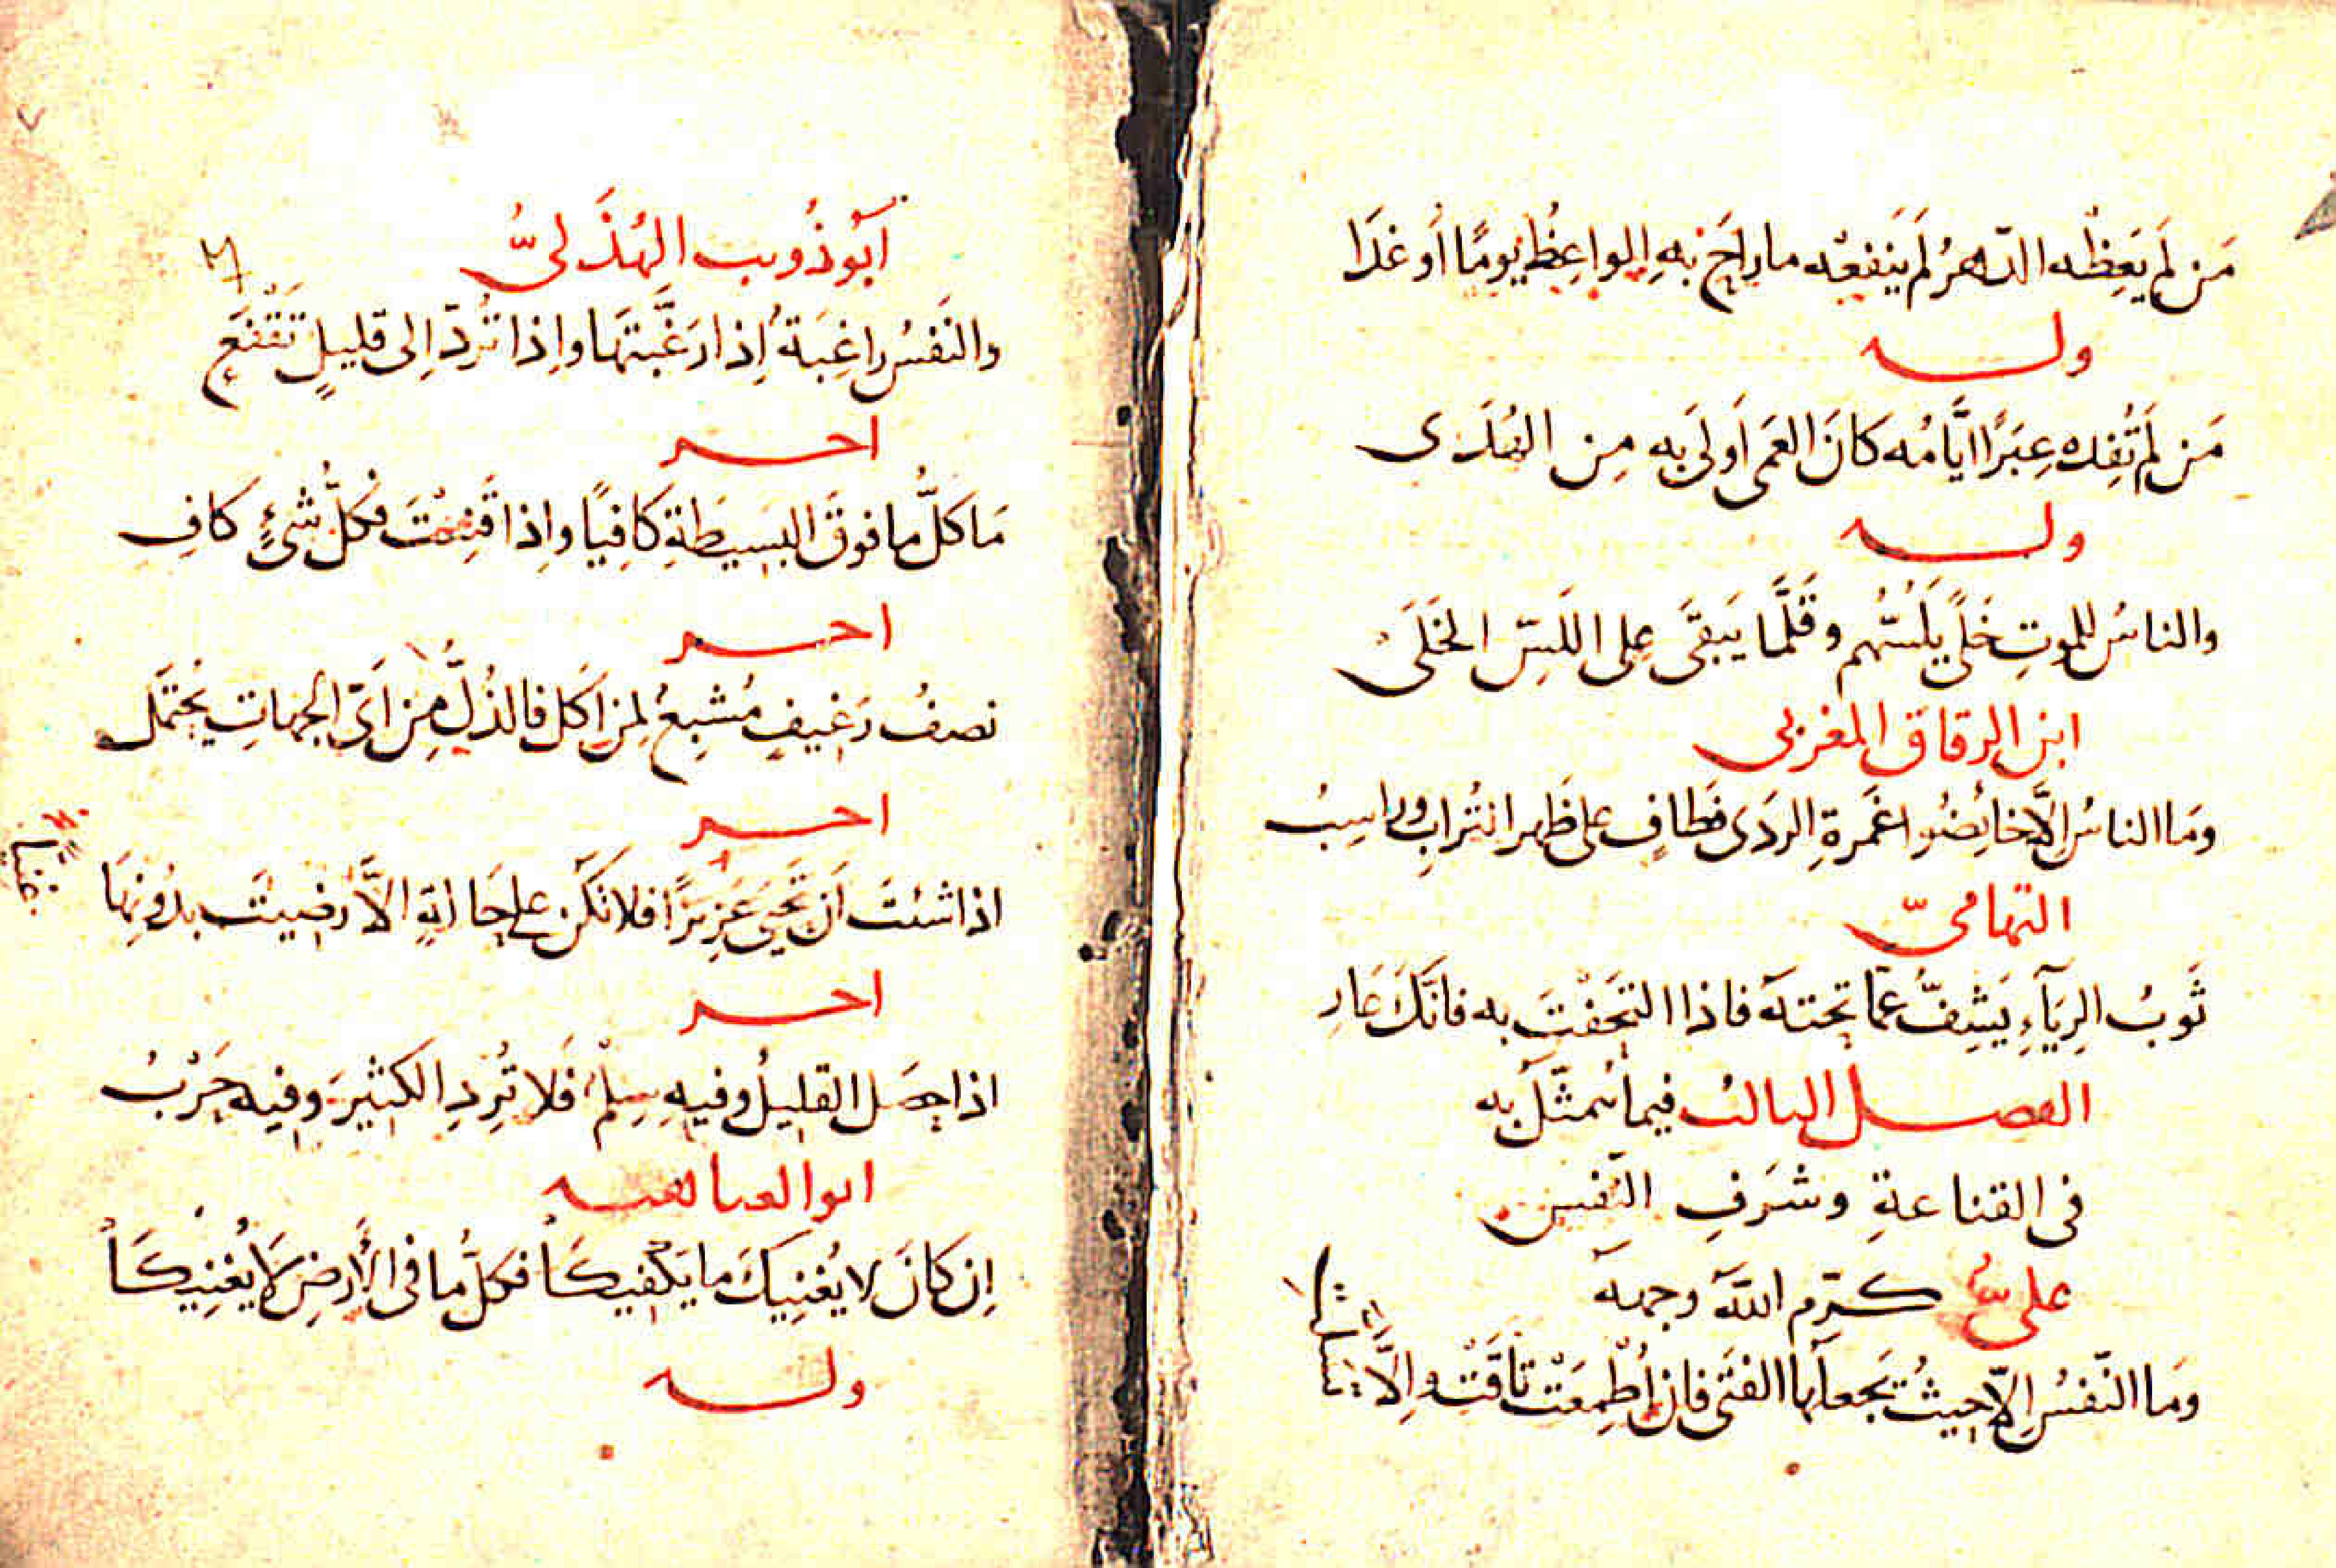 مَن لَم يَعِظْه الدّهرُ لَم يَنفعْه ما رَاحَ بهِ الواعِظُ يومًا أو غَدَا
وله
مَن لَم تُفِده عِبَرًا ايَّامُه كانَ العَمَى اَولَى به مِن الهُدَى
وله
والناسُ للموتِ خَلًى يَلُسُّهم وقَلَّمَا يَبقَى على اللَسِّ الخَلَى
ابن الرقاق المغربى
وَما الناسُ الَّا خائِضُوا غَمرةِ الردَى فطافٍ على ظَهر التُرابِ وراسِبُ
التهامىّ
ثَوبُ الرِيَآءِ يَشِفُّ عمّا تحته فاذا التَحَفْتَ به فانّكَ عَارِ
الفصل الثالث فيما يُتمثَّلُ به
فى القناعةِ وشَرَفِ النّفس
علىٌّ كرّم اللّه وجهه
وَما النّفسُ اِلّا حيثُ يَجعلُها الفتَى فان اُطْمِعَتْ تَاقَتْ واِلَّا
اَبُو ذُويب الهُذَلىُّ
والنَفسُ راغِبَةٌ اِذا رَغَّبتَهَا واِذا تُرَدّ اِلى قليلٍ تَقْنَع
اخر
مَا كلُّ ما فوقَ البَسيطَةِ كافِيًا واِذا قَنِعْتَ فكلُّ شىْءٍ كافِ
اخر
نصفُ رَغيفٍ مُشبِعٌ لمن اَكَل فالذُلُّ مِن اَىّ الجهاتِ يُحْتَمَل
اخر
اذا شئتَ اَن تَحْيَى عَزِيزًا فلا تكُن على حَالةٍ الَّا رضيتَ بدُونِهَا
اخر
اذا حصَل القليلُ وفيهِ سِلْمٌ فَلا تُرِدِ الكثيرَ وفيه حَرْبُ
ابو العتاهيه
اِن كانَ لا يُغنِيكَ ما يَكفِيكَا فكلُّ ما فى الأرضِ لَا يُغنِيكَا
وله